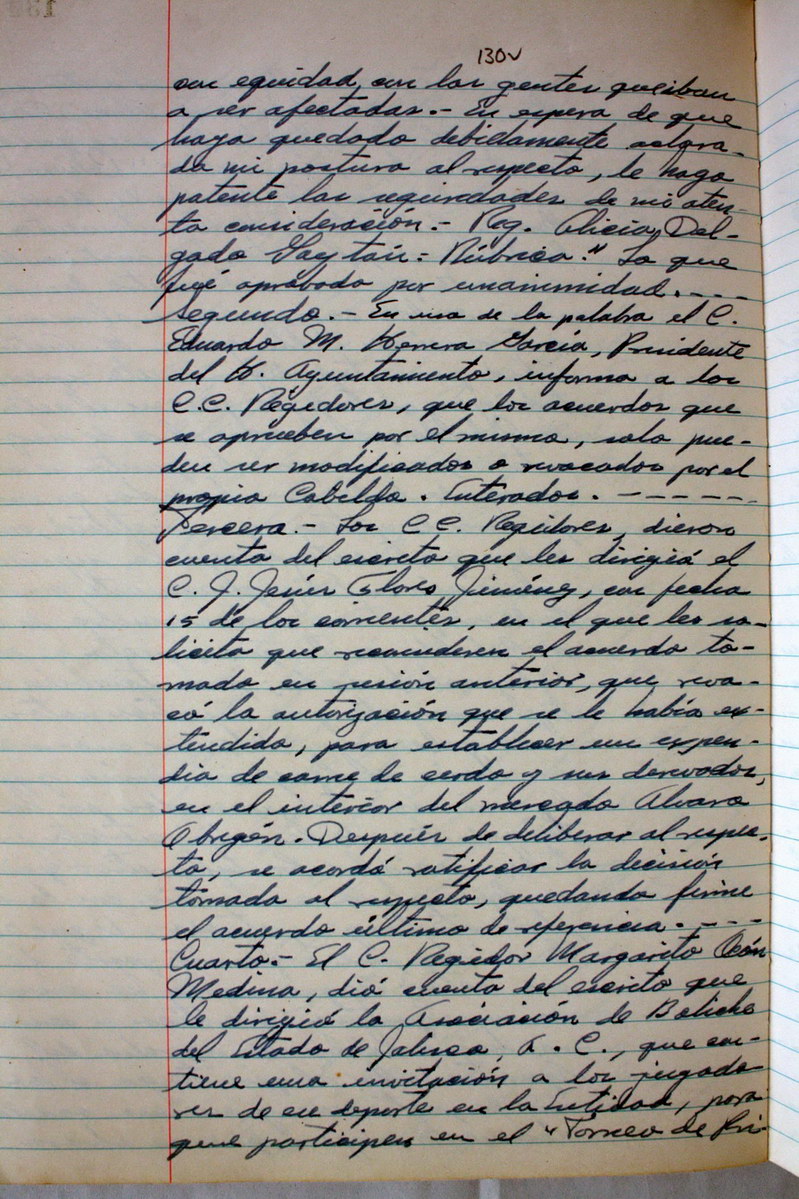 130v
con equidad con las gentes que iban
a ser afectadas.- En espera de que
haya quedado debidamente aclara-
da mi postura al respecto, le hago
patente las seguridades de mi aten-
ta consideración.- Reg. Alicia Del-
gado Gaytán.- Rúbrica." Lo que
fué aprobado por unanimidad.----
Segundo.- En uso de la palabra el C.
Eduardo M. Herrera García, Presidente
del H. Ayuntamiento, informa a los
C.C. Regidores, que los acuerdos que
se aprueben por el mismo, solo pue-
den ser modificados o revocados por el
propio Cabildo. Enterados.------
Tercero.- Los C C. Regidores, dieron
cuenta del escrito que les dirigió el
C. J. Jesús Flores Jiménez, con fecha
15 de los corrientes, en el que les so-
licita que reconsideren el acuerdo to-
mado en sesión anterior, que revo-
có la autorización que se le había ex-
tendido, para establecer un expen-
dio de carne de cerdo y sus derivados,
en el interior del mercado Alvaro
Obregón. Después de deliberar al respec-
to, se acordó ratificar la decisión
tomada al respecto, quedando firme
el acuerdo último de referencia.----
Cuarto.- El C. Regidor Margarito
Medina, dió cuenta del escrito que
le dirigió la Asociación de Boliche
del Estado de Jalisco, A. C., que con-
tiene una invitación a los jugado
res de ese deporte en la Entidad, para
que participen en el "Torneo de